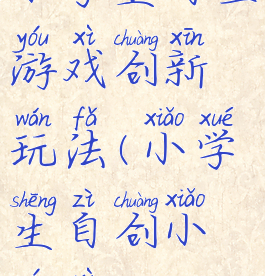 yóu xì chuàng xīn
游戏创新
wán fǎ xiǎo xué
玩法(小学
shēng zì chuàng xiǎo
生自创小